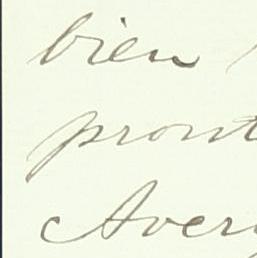 bien
pront
Aver